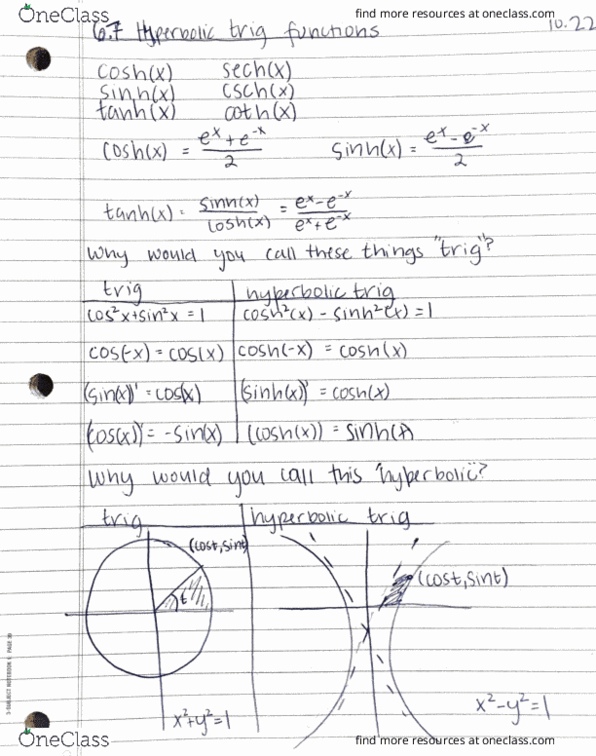 OneClass
find more resources at oneclass.com
6.7 Hyperbolic trig functions
10.22
cosh(x) sech(x)
sinh(x) csch(x)
tanh(x) coth(x)
cosh(x) = e^x + e^-x / 2 sinh(x) = e^x - e^-x / 2
tanh(x) = sinh(x) / cosh(x) = e^x - e^-x / e^x + e^-x
Why would you call these things "trig"?
trig hyperbolic trig
cos²x + sin²x = 1 cosh²(x) - sinh²(x) = 1
cos(-x) = cos(x) cosh(-x) = cosh(x)
(sin(x))' = cos(x) (sinh(x))' = cosh(x)
(cos(x))' = -sin(x) (cosh(x)) = sinh(x)
Why would you call this "hyperbolic"?
trig hyperbolic trig
(cost, sint)
t
(cost, sint)
x² + y² = 1
x² - y² = 1
5-SUBJECT NOTEBOOK
OneClass
find more resources at oneclass.com